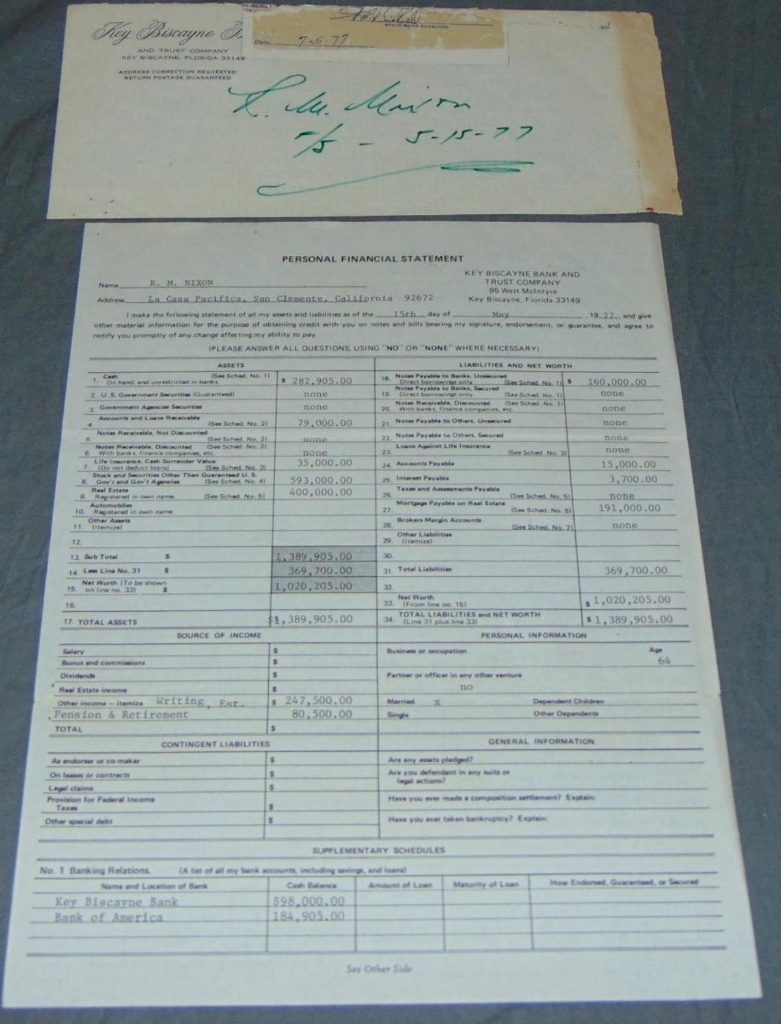 Key Biscayne
AND TRUST COMPANY
KEY BISCAYNE, FLORIDA 33149
ADDRESS CORRECTION REQUESTED
RETURN POSTAGE GUARANTEED
STATE BANK EXAMINER
Date
R. M. Nixon
F/S - 5-15-77
PERSONAL FINANCIAL STATEMENT
KEY BISCAYNE BANK AND
TRUST COMPANY
95 West McIntyre
Key Biscayne, Florida 33149
Name R. M. NIXON
Address La Casa Pacifica, San Clemente, California 92672
I make the following statement of all my assets and liabilities as of the 15th day of May, 19 77, and give
other material information for the purpose of obtaining credit with you on notes and bills bearing my signature, endorsement, or guarantee, and agree to
notify you promptly of any change affecting my ability to pay.
(PLEASE ANSWER ALL QUESTIONS, USING "NO" OR "NONE" WHERE NECESSARY)
ASSETS
1. Cash (See Sched. No. 1)
On hand, and unrestricted in banks. $ 282,905.00
2. U.S. Government Securities (Guaranteed) none
3. Government Agencies Securities none
4. Accounts and Loans Receivable (See Sched. No. 2) 79,000.00
5. Notes Receivable, Not Discounted (See Sched. No. 2) none
6. Notes Receivable, Discounted (See Sched. No. 2)
With banks, finance companies, etc. none
7. Life Insurance, Cash Surrender Value
(Do not deduct loans) (See Sched. No. 3) 35,000.00
8. Stock and Securities Other Than Guaranteed U.S.
Gov't and Gov't Agencies (See Sched. No. 4) 593,000.00
9. Real Estate
Registered in own name. (See Sched. No. 5) 400,000.00
10. Automobiles
Registered in own name.
11. Other Assets
(Itemize)
12.
13. Sub Total $ 1,389,905.00
14. Less Line No. 31 $ 369,700.00
15. Net Worth (To be shown
on line no. 33) $ 1,020,205.00
16.
17. TOTAL ASSETS $1,389,905.00
LIABILITIES AND NET WORTH
18. Notes Payable to Banks, Unsecured
Direct borrowings only (See Sched. No. 1) $ 160,000.00
19. Notes Payable to Banks, Secured
Direct borrowings only (See Sched. No. 1) none
20. Notes Receivable, Discounted (See Sched. No. 1)
With banks, finance companies, etc. none
21. Notes Payable to Others, Unsecured none
22. Notes Payable to Others, Secured none
23. Loans Against Life Insurance (See Sched. No. 3) none
24. Accounts Payable 15,000.00
25. Interest Payable 3,700.00
26. Taxes and Assessments Payable (See Sched. No. 5) none
27. Mortgage Payable on Real Estate (See Sched. No. 5) 191,000.00
28. Brokers Margin Accounts (See Sched. No. 7) none
29. Other Liabilities
(Itemize)
30.
31. Total Liabilities 369,700.00
32.
33. Net Worth
(From line no. 15) $ 1,020,205.00
34. TOTAL LIABILITIES and NET WORTH
(Line 31 plus line 33) $ 1,389,905.00
SOURCE OF INCOME
Salary $
Bonus and commissions $
Dividends $
Real Estate income $
Other income — itemize Writing, Est. $ 247,500.00
Pension & Retirement 80,500.00
TOTAL $
PERSONAL INFORMATION
Business or occupation Age
64
Partner or officer in any other venture
no
Married X Dependent Children
Single Other Dependents
CONTINGENT LIABILITIES
As endorser or co-maker $
On leases or contracts $
Legal claims $
Provision for Federal Income
Taxes $
Other special debt $
GENERAL INFORMATION
Are any assets pledged?
Are you defendant in any suits or
legal actions?
Have you ever made a composition settlement? Explain:
Have you ever taken bankruptcy? Explain:
SUPPLEMENTARY SCHEDULES
No. 1 Banking Relations. (A list of all my bank accounts, including savings, and loans)
Name and Location of Bank Cash Balance Amount of Loan Maturity of Loan How Endorsed, Guaranteed, or Secured
Key Biscayne Bank $98,000.00
Bank of America 184,905.00
See Other Side